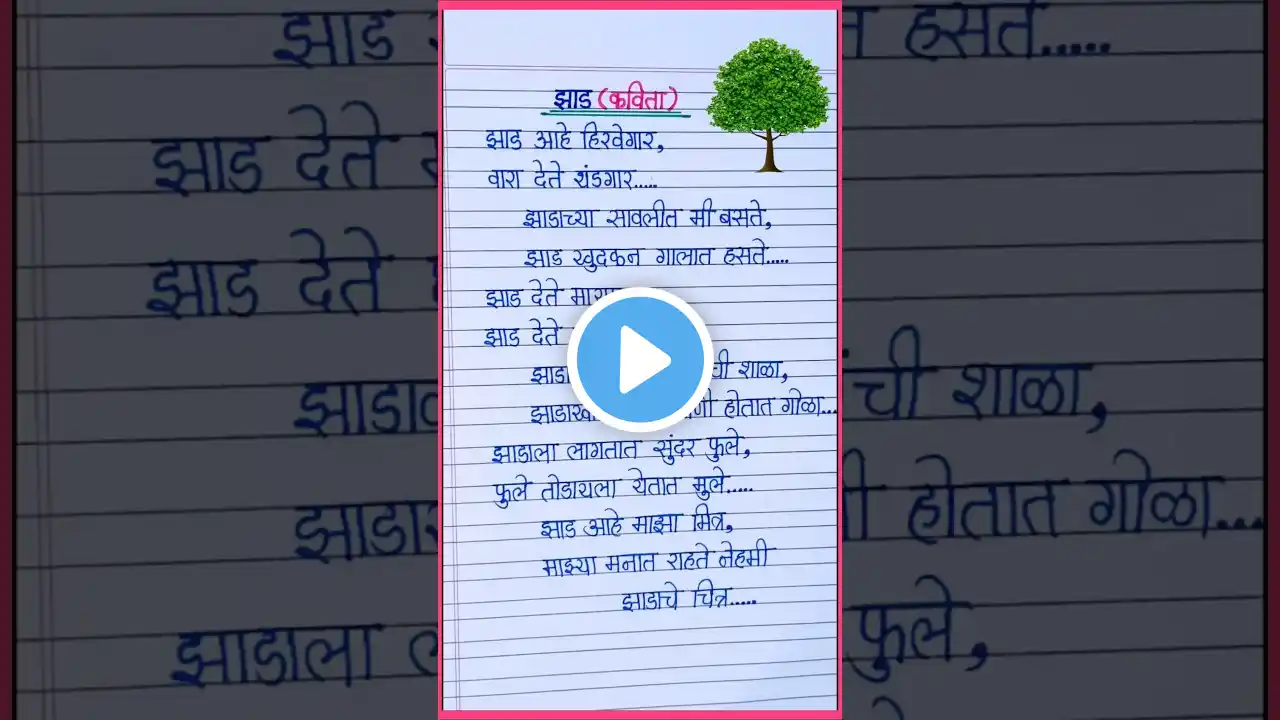 झाड (कविता)
झाड आहे हिरवेगार,
वारा देते थंडगार.....
झाडाच्या सावलीत मी बसते,
झाड खुदकन गालात हसते.....
झाड देते
झाड देते
ची शाळा,
होतात गोळा...
झाडाला लागतात सुंदर फुले,
फुले तोडायला येतात मुले.....
झाड आहे माझा मित्र,
माझ्या मनात राहते नेहमी
झाडाचे चित्र.....